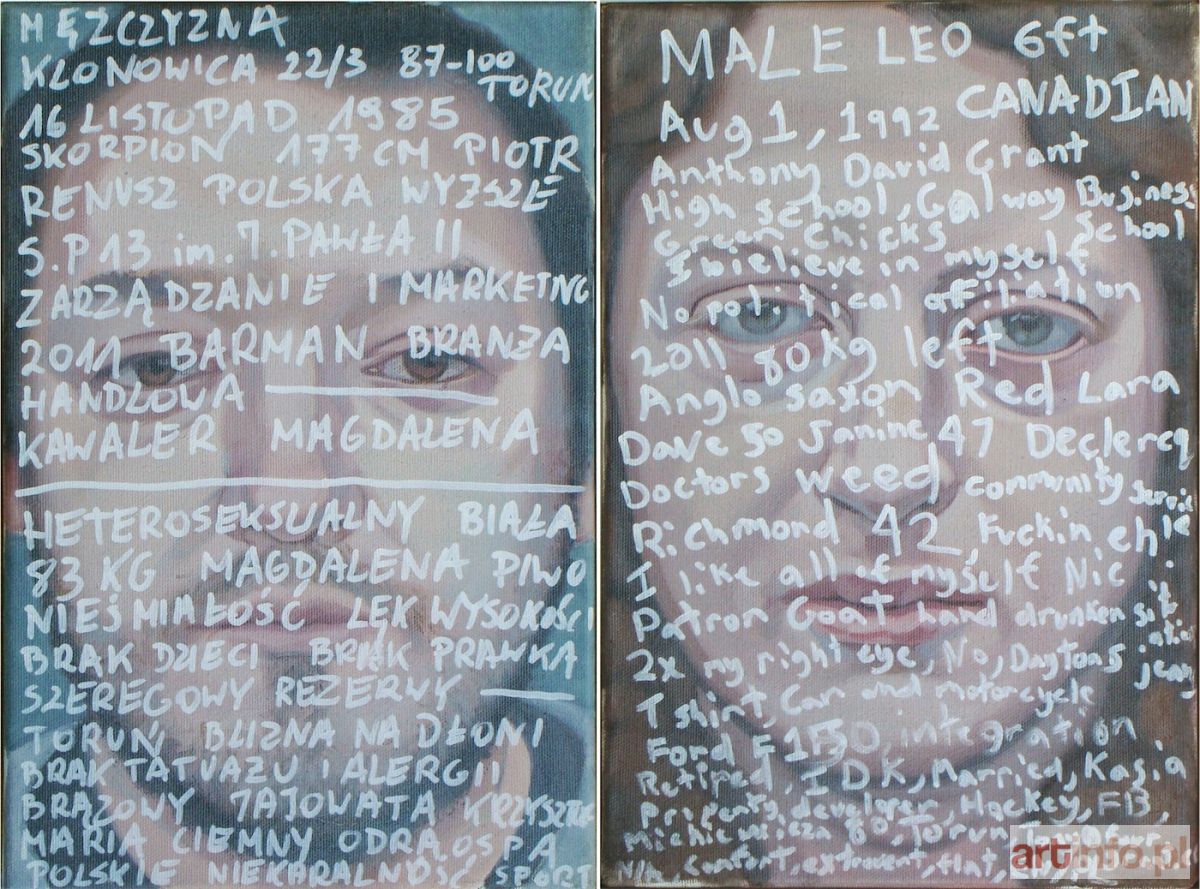 MĘŻCZYZNA
KLONOWICA 22/3 87-100
TORUŃ
16 LISTOPAD 1985
SKORPION 177 CM PIOTR
RENUSZ POLSKA WYŻSZE
S.P 13 im. J. PAWŁA II
ZARZĄDZANIE I MARKETING
2011 BARMAN BRANŻA
HANDLOWA
KAWALER MAGDALENA
HETEROSEKSUALNY BIAŁA
83 KG MAGDALENA PIWO
NIEŚMIAŁOŚĆ LĘK WYSOKOŚCI
BRAK DZIECI BRAK PRAWKA
SZEREGOWY REZERWY
TORUŃ BLIZNA NA DŁONI
BRAK TATUAŻU I ALERGII
BRĄZOWY JAJOWATA
MARIA CIEMNY ODRA, OSPA
POLSKIE NIEKARALNOŚĆ SPORT
MALE LEO 6ft
CANADIAN
Aug 1, 1992
Anthony David Grant
High school, Galway Business School
Green Chicks
I bielieve in myself
No political affiliation
2011 80kg left
Anglo saxon Red Lara
Dave 50 Janine 47 Declercq
Doctors weed community service
Richmond 42, Fuckin chle
I like all of myself Nic
Patron Goat hand drunken
2x my right eye, No, Daytons
T shirt, Car and motorcycle
Ford F150, integration
Retired, I.D.K, Married, Kasia
property developer, Hockey, FB,
80, Torun
N/A, comfort, extrovert, flat,
artinfo.pl